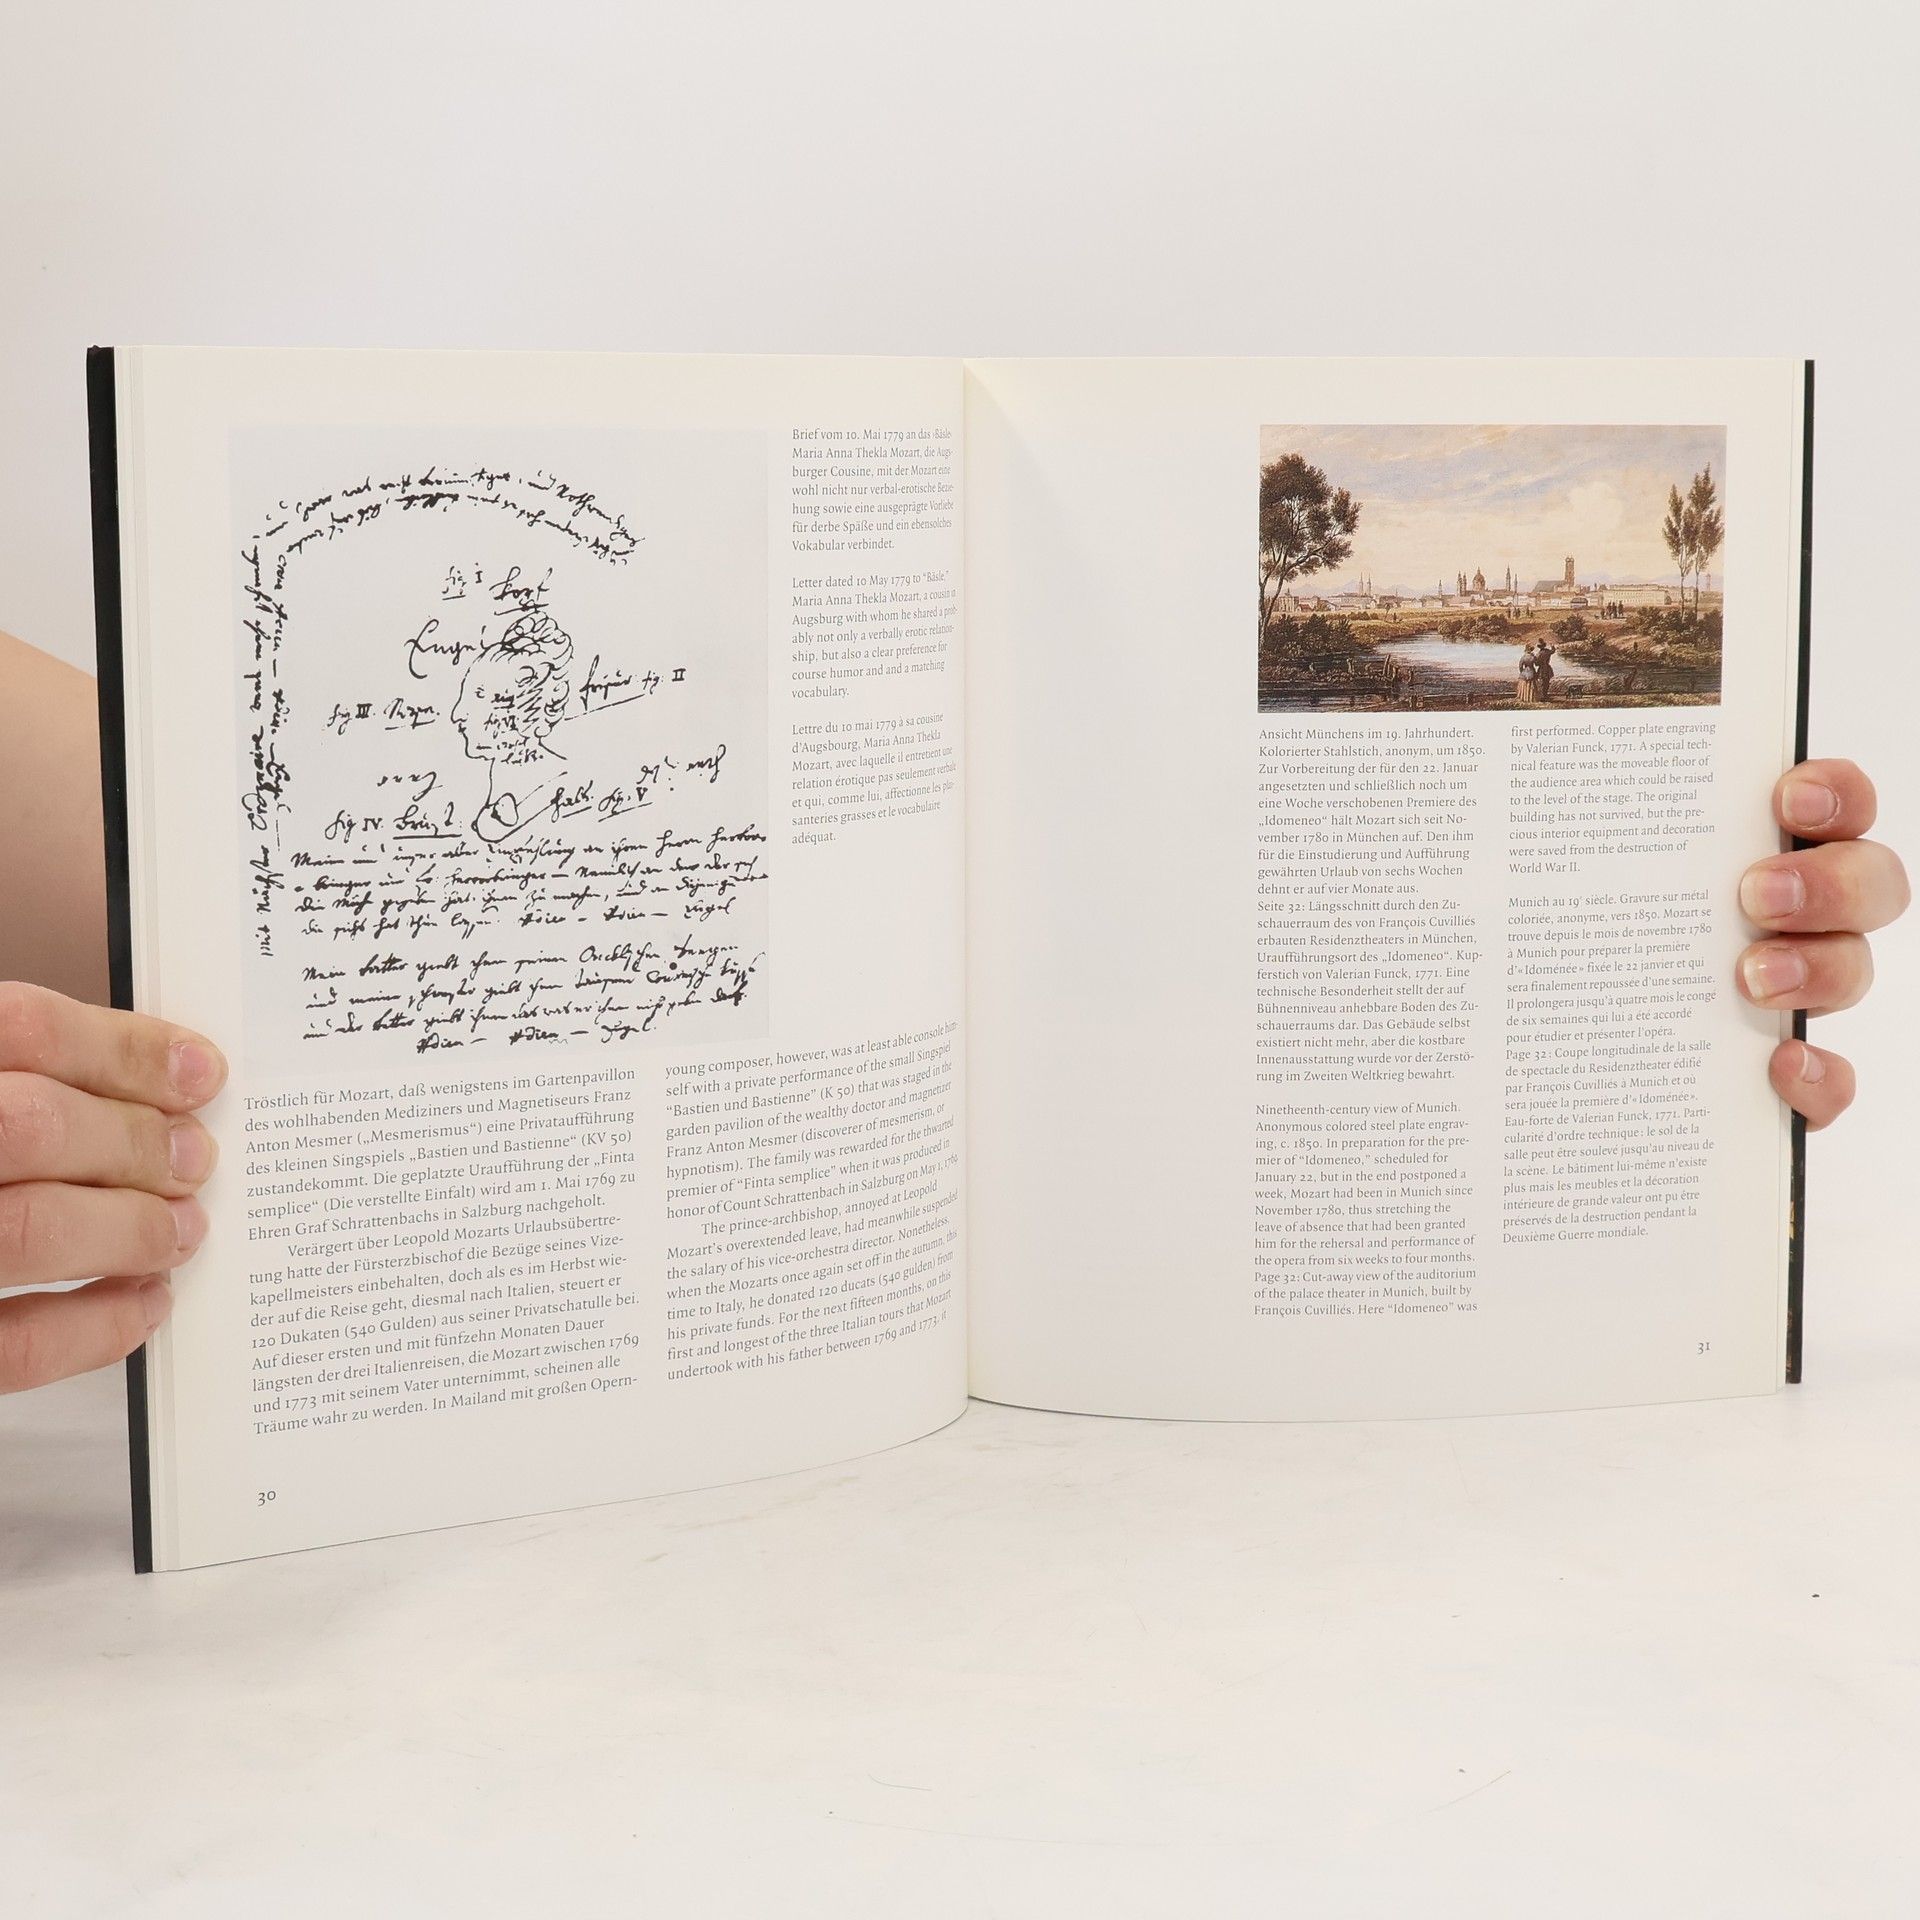 fig I Kopf
Engel
fig III. Nase.
frisur fig. II
fig VI
fig IV. Brust
hals. fig. V
Adieu — Adieu — Engel
Adieu — Adieu — Engel.
Brief vom 10. Mai 1779 an das ›Bäsle‹
Maria Anna Thekla Mozart, die Augs-
burger Cousine, mit der Mozart eine
wohl nicht nur verbal-erotische Bezie-
hung sowie eine ausgeprägte Vorliebe
für derbe Späße und ein ebensolches
Vokabular verbindet.
Letter dated 10 May 1779 to “Bäsle,”
Maria Anna Thekla Mozart, a cousin in
Augsburg with whom he shared a prob-
ably not only a verbally erotic relation-
ship, but also a clear preference for
course humor and and a matching
vocabulary.
Lettre du 10 mai 1779 à sa cousine
d’Augsbourg, Maria Anna Thekla
Mozart, avec laquelle il entretient une
relation érotique pas seulement verbale
et qui, comme lui, affectionne les plai-
santeries grasses et le vocabulaire
adéquat.
Tröstlich für Mozart, daß wenigstens im Gartenpavillon
des wohlhabenden Mediziners und Magnetiseurs Franz
Anton Mesmer („Mesmerismus“) eine Privataufführung
des kleinen Singspiels „Bastien und Bastienne“ (KV 50)
zustandekommt. Die geplatzte Uraufführung der „Finta
semplice“ (Die verstellte Einfalt) wird am 1. Mai 1769 zu
Ehren Graf Schrattenbachs in Salzburg nachgeholt.
Verärgert über Leopold Mozarts Urlaubsübertre-
tung hatte der Fürsterzbischof die Bezüge seines Vize-
kapellmeisters einbehalten, doch als es im Herbst wie-
der auf die Reise geht, diesmal nach Italien, steuert er
120 Dukaten (540 Gulden) aus seiner Privatschatulle bei.
Auf dieser ersten und mit fünfzehn Monaten Dauer
längsten der drei Italienreisen, die Mozart zwischen 1769
und 1773 mit seinem Vater unternimmt, scheinen alle
Träume wahr zu werden. In Mailand mit großen Opern-
young composer, however, was at least able console him-
self with a private performance of the small Singspiel
“Bastien und Bastienne” (K 50) that was staged in the
garden pavilion of the wealthy doctor and magnetizer
Franz Anton Mesmer (discoverer of mesmerism, or
hypnotism). The family was rewarded for the thwarted
premier of “Finta semplice” when it was produced in
honor of Count Schrattenbach in Salzburg on May 1, 1769.
The prince-archbishop, annoyed at Leopold
Mozart’s overextended leave, had meanwhile suspended
the salary of his vice-orchestra director. Nonetheless,
when the Mozarts once again set off in the autumn, this
time to Italy, he donated 120 ducats (540 gulden) from
his private funds. For the next fifteen months, on this
first and longest of the three Italian tours that Mozart
undertook with his father between 1769 and 1773, it
30
Ansicht Münchens im 19. Jahrhundert.
Kolorierter Stahlstich, anonym, um 1850.
Zur Vorbereitung der für den 22. Januar
angesetzten und schließlich noch um
eine Woche verschobenen Premiere des
„Idomeneo“ hält Mozart sich seit No-
vember 1780 in München auf. Den ihm
für die Einstudierung und Aufführung
gewährten Urlaub von sechs Wochen
dehnt er auf vier Monate aus.
Seite 32: Längsschnitt durch den Zu-
schauerraum des von François Cuvilliés
erbauten Residenztheaters in München,
Uraufführungsort des „Idomeneo“. Kup-
ferstich von Valerian Funck, 1771. Eine
technische Besonderheit stellt der auf
Bühnenniveau anhebbare Boden des Zu-
schauerraums dar. Das Gebäude selbst
existiert nicht mehr, aber die kostbare
Innenausstattung wurde vor der Zerstö-
rung im Zweiten Weltkrieg bewahrt.
Ninetheenth-century view of Munich.
Anonymous colored steel plate engrav-
ing, c. 1850. In preparation for the pre-
mier of “Idomeneo,” scheduled for
January 22, but in the end postponed a
week, Mozart had been in Munich since
November 1780, thus stretching the
leave of absence that had been granted
him for the rehersal and performance of
the opera from six weeks to four months.
Page 32: Cut-away view of the auditorium
of the palace theater in Munich, built by
François Cuvilliés. Here “Idomeneo” was
first performed. Copper plate engraving
by Valerian Funck, 1771. A special tech-
nical feature was the moveable floor of
the audience area which could be raised
to the level of the stage. The original
building has not survived, but the pre-
cious interior equipment and decoration
were saved from the destruction of
World War II.
Munich au 19e siècle. Gravure sur métal
coloriée, anonyme, vers 1850. Mozart se
trouve depuis le mois de novembre 1780
à Munich pour préparer la première
d’« Idoménée » fixée le 22 janvier et qui
sera finalement repoussée d’une semaine.
Il prolongera jusqu’à quatre mois le congé
de six semaines qui lui a été accordé
pour étudier et présenter l’opéra.
Page 32 : Coupe longitudinale de la salle
de spectacle du Residenztheater édifié
par François Cuvilliés à Munich et où
sera jouée la première d’« Idoménée».
Eau-forte de Valerian Funck, 1771. Parti-
cularité d’ordre technique : le sol de la
salle peut être soulevé jusqu’au niveau de
la scène. Le bâtiment lui-même n’existe
plus mais les meubles et la décoration
intérieure de grande valeur ont pu être
préservés de la destruction pendant la
Deuxième Guerre mondiale.
31